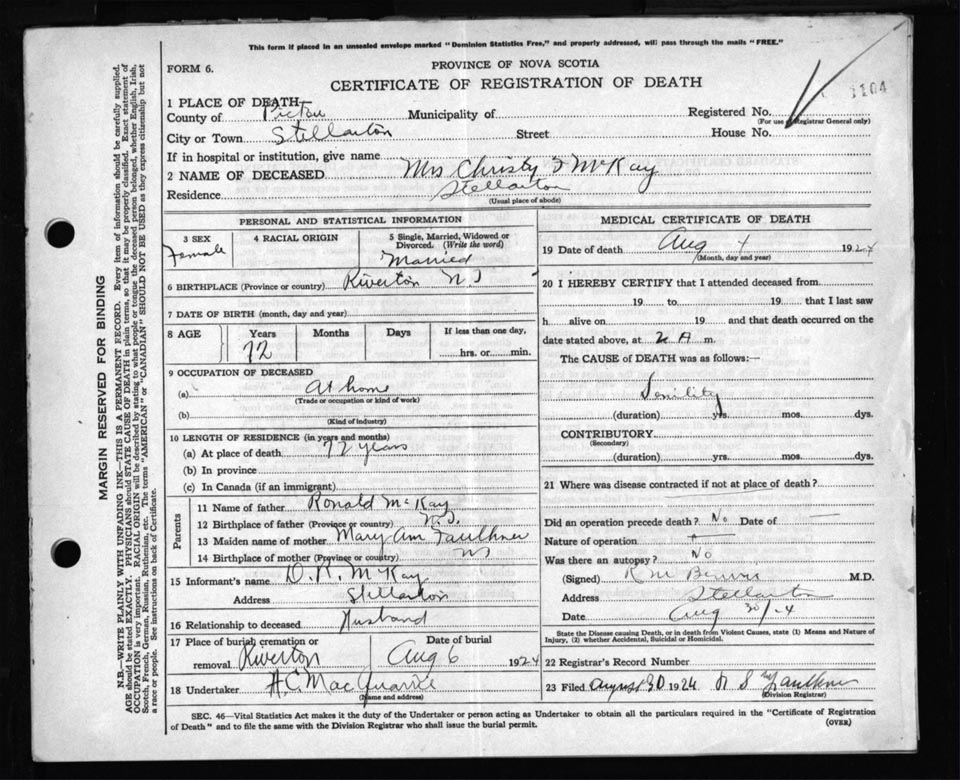 This form if placed in an unsealed envelope marked "Dominion Statistics Free," and properly addressed, will pass through the mails "FREE."
FORM 6.
PROVINCE OF NOVA SCOTIA
CERTIFICATE OF REGISTRATION OF DEATH
1104
1 PLACE OF DEATH
County of Pictou Municipality of Registered No.
(For use of Registrar General only)
City or Town Stellarton Street House No.
If in hospital or institution, give name
2 NAME OF DECEASED Mrs Christy J McKay
Residence Stellarton
(Usual place of abode)
PERSONAL AND STATISTICAL INFORMATION
3 SEX 4 RACIAL ORIGIN 5 Single, Married, Widowed or Divorced. (Write the word)
Female Married
6 BIRTHPLACE (Province or country) Riverton N S
7 DATE OF BIRTH (month, day and year)
8 AGE Years Months Days If less than one day,
72 hrs. or min.
9 OCCUPATION OF DECEASED
(a) At home
(Trade or occupation or kind of work)
(b)
(Kind of industry)
10 LENGTH OF RESIDENCE (in years and months)
(a) At place of death 72 years
(b) In province
(c) In Canada (if an immigrant)
Parents
11 Name of father Ronald McKay
12 Birthplace of father (Province or country) N.S.
13 Maiden name of mother Mary Ann Faulkner
14 Birthplace of mother (Province or country) NS
15 Informant's name D. R. McKay
Address Stellarton
16 Relationship to deceased Husband
17 Place of burial cremation or removal Riverton Date of burial Aug 6 1924
18 Undertaker H.C. MacQuarrie
(Name and address)
MEDICAL CERTIFICATE OF DEATH
19 Date of death Aug 4 1924
(Month, day and year)
20 I HEREBY CERTIFY that I attended deceased from
19 to 19 that I last saw
h alive on 19 and that death occurred on the
date stated above, at 2 A m.
The CAUSE of DEATH was as follows:—
Senility
(duration) yrs. mos. dys.
CONTRIBUTORY
(Secondary)
(duration) yrs. mos. dys.
21 Where was disease contracted if not at place of death?
Did an operation precede death? No Date of —
Nature of operation
Was there an autopsy? No
(Signed) R M Benvie M.D.
Address Stellarton
Date Aug 30/24
State the Disease causing Death, or in death from Violent Causes, state (1) Means and Nature of
Injury, (2) whether Accidental, Suicidal or Homicidal.
22 Registrar's Record Number
23 Filed August 30 1924 Faulkner
(Division Registrar)
SEC. 46—Vital Statistics Act makes it the duty of the Undertaker or person acting as Undertaker to obtain all the particulars required in the "Certificate of Registration
of Death" and to file the same with the Division Registrar who shall issue the burial permit.
(OVER)
MARGIN RESERVED FOR BINDING
N.B.—WRITE PLAINLY WITH UNFADING INK—THIS IS A PERMANENT RECORD. Every item of information should be carefully supplied.
AGE should be stated EXACTLY. PHYSICIANS should STATE CAUSE OF DEATH in plain terms, so that it may be properly classified. Exact statement of
OCCUPATION is very important. RACIAL ORIGIN will be described by stating to what people or tongue the deceased person belonged, whether English, Irish,
Scotch, French, German, Russian, Ruthenian, etc. The terms "AMERICAN" or "CANADIAN" SHOULD NOT BE USED as they express citizenship but not
a race or people. See instructions on back of Certificate.